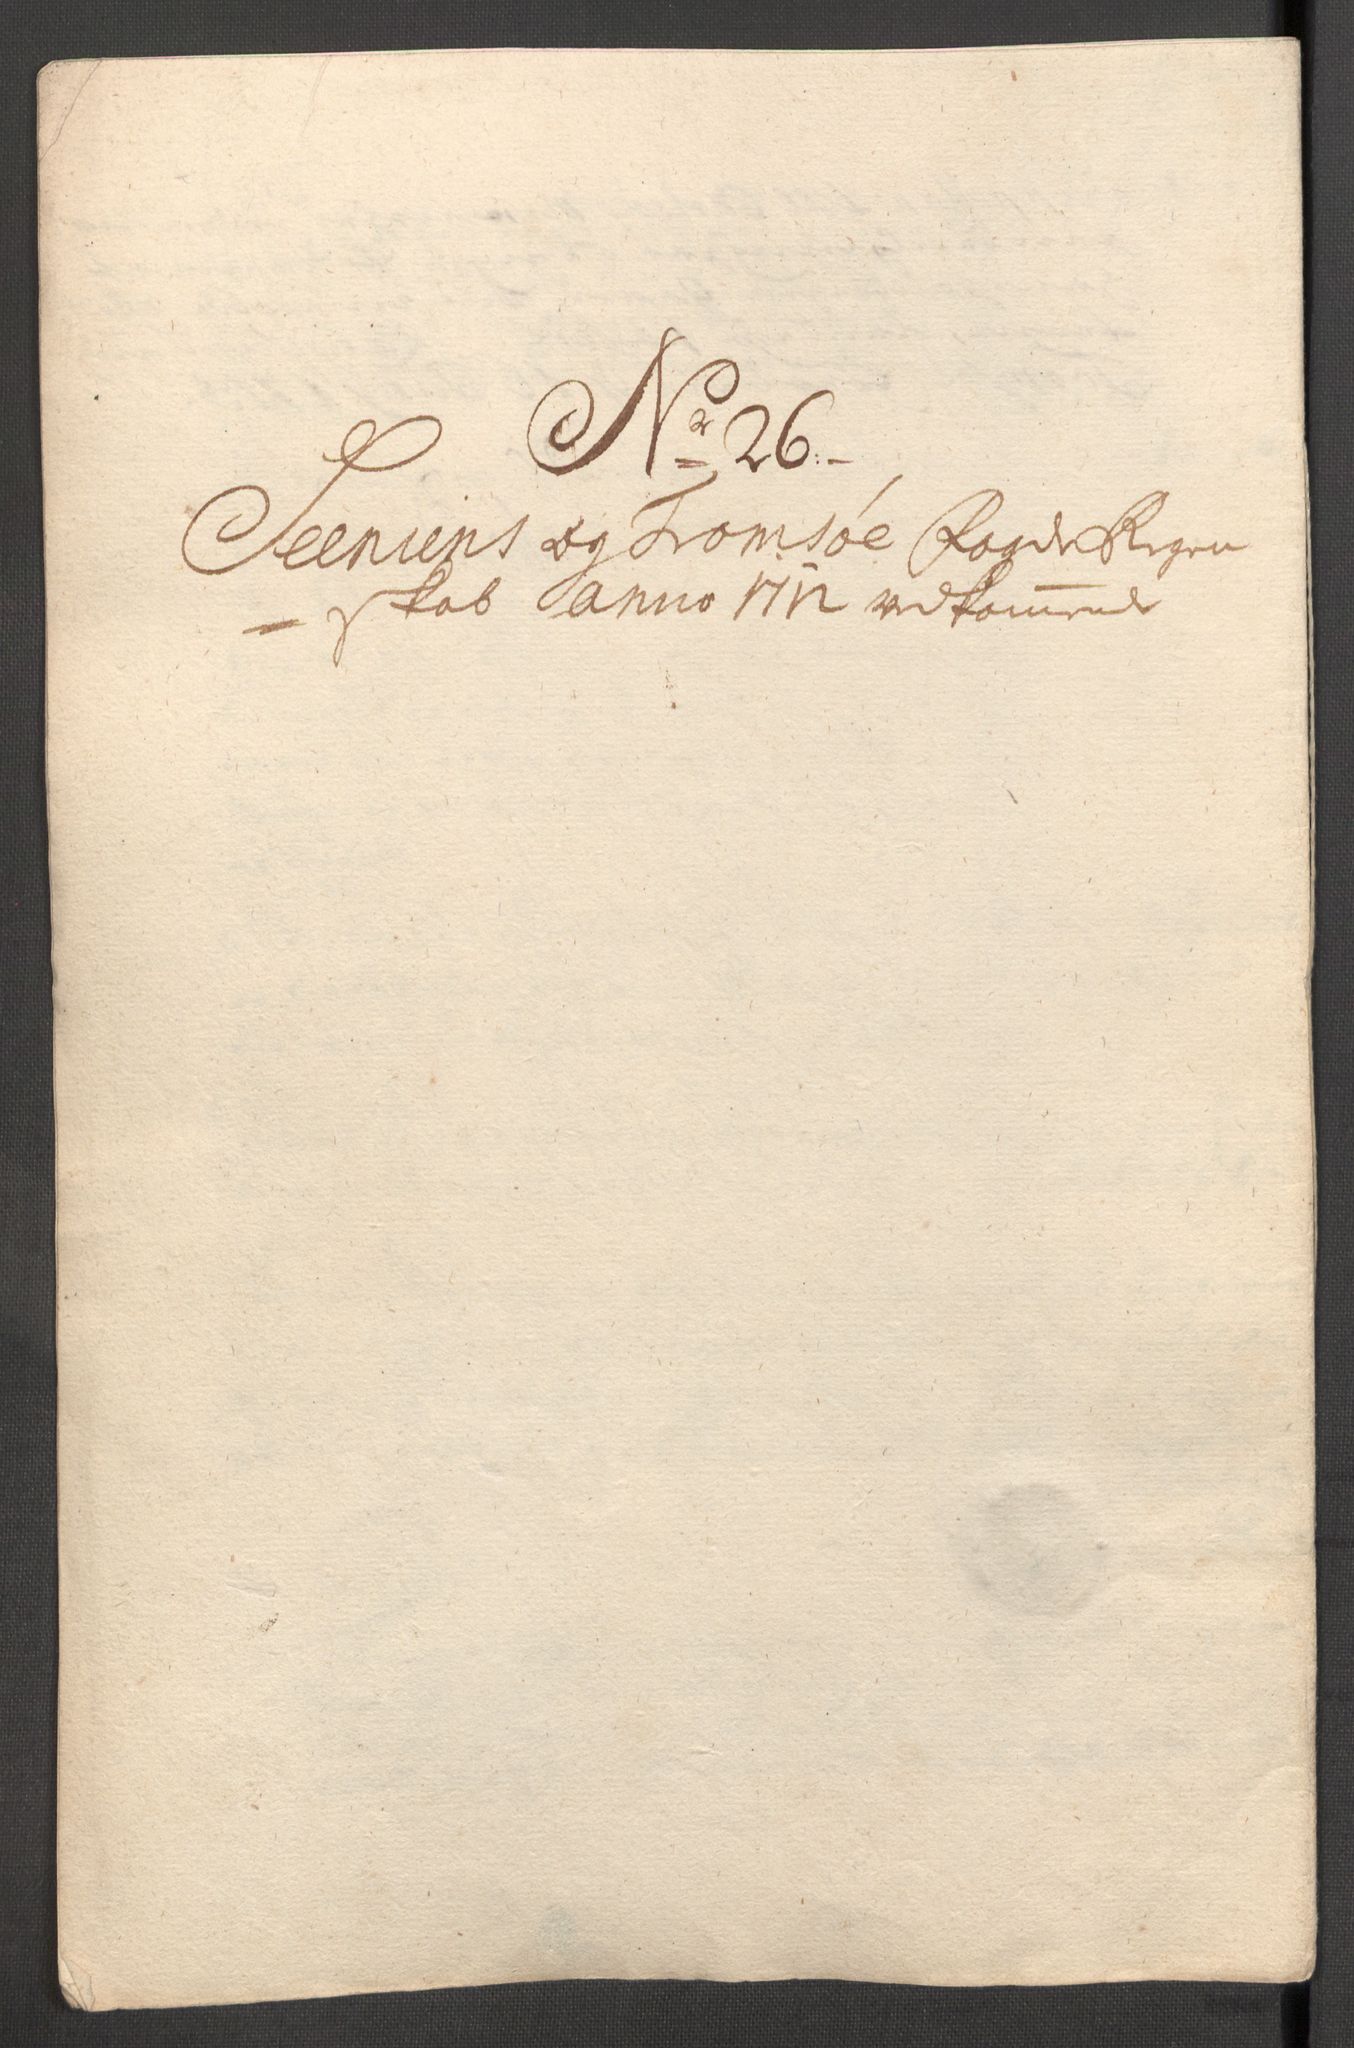 No 26.
Seeniens og Tromsøe Fogderi Regen
skab anno 1712 vedkommende